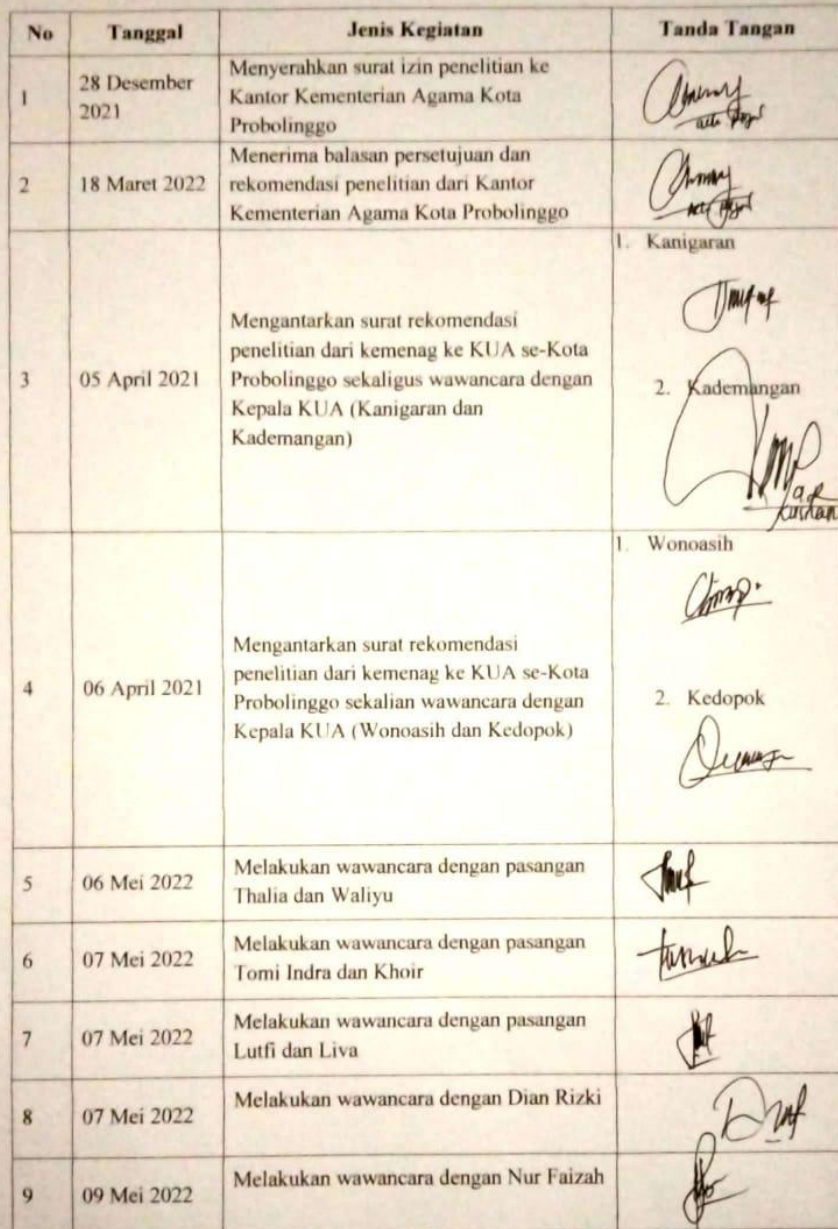 No Tanggal Jenis Kegiatan Tanda Tangan
1
28 Desember
2021
Menyerahkan surat izin penelitian ke
Kantor Kementerian Agama Kota
Probolinggo
2
18 Maret 2022
Menerima balasan persetujuan dan
rekomendasi penelitian dari Kantor
Kementerian Agama Kota Probolinggo
3
05 April 2021
Mengantarkan surat rekomendasi
penelitian dari kemenag ke KUA se-Kota
Probolinggo sekaligus wawancara dengan
Kepala KUA (Kanigaran dan
Kademangan)
1. Kanigaran
2. Kademangan
4
06 April 2021
Mengantarkan surat rekomendasi
penelitian dari kemenag ke KUA se-Kota
Probolinggo sekalian wawancara dengan
Kepala KUA (Wonoasih dan Kedopok)
1. Wonoasih
2. Kedopok
5
06 Mei 2022
Melakukan wawancara dengan pasangan
Thalia dan Waliyu
6
07 Mei 2022
Melakukan wawancara dengan pasangan
Tomi Indra dan Khoir
7
07 Mei 2022
Melakukan wawancara dengan pasangan
Lutfi dan Liva
8
07 Mei 2022
Melakukan wawancara dengan Dian Rizki
9
09 Mei 2022
Melakukan wawancara dengan Nur Faizah